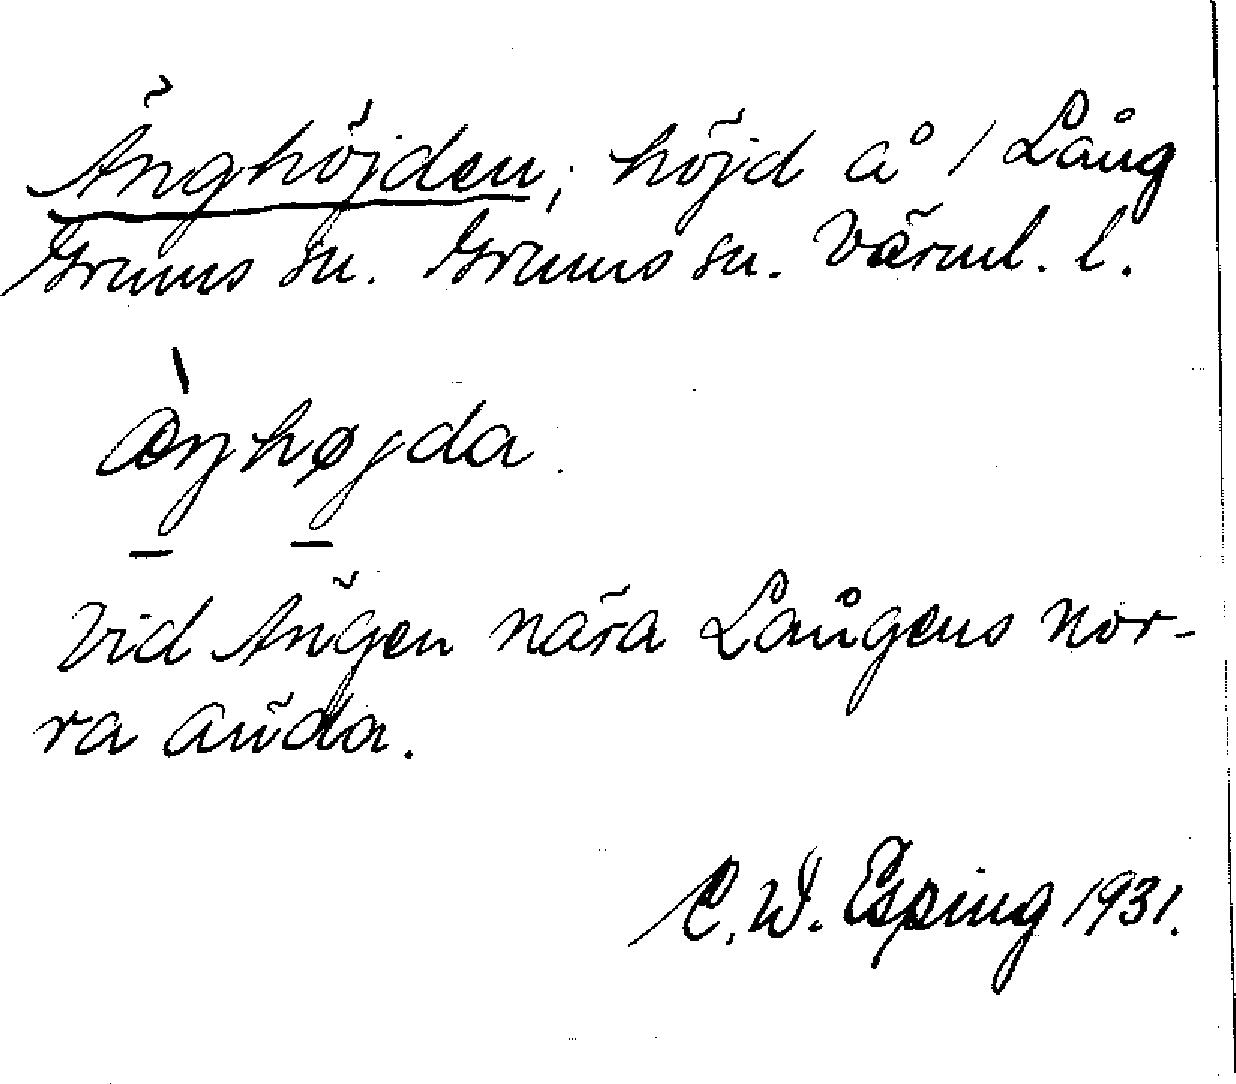 Änghöjden; höjd å 1 Lång
Grums sn. Grums sn. Värml. l.
æ̀ŋhøjda.
Vid Ängen nära Långens nor-
ra ända.
C. W. Esping 1931.